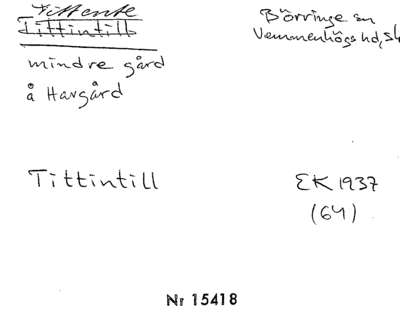 Tittente
Tittintill
Börringe sn
Vemmenhögs hd, Sk
mindre gård
å Havgård
Tittintill
EK 1937
(64)
Nr 15418